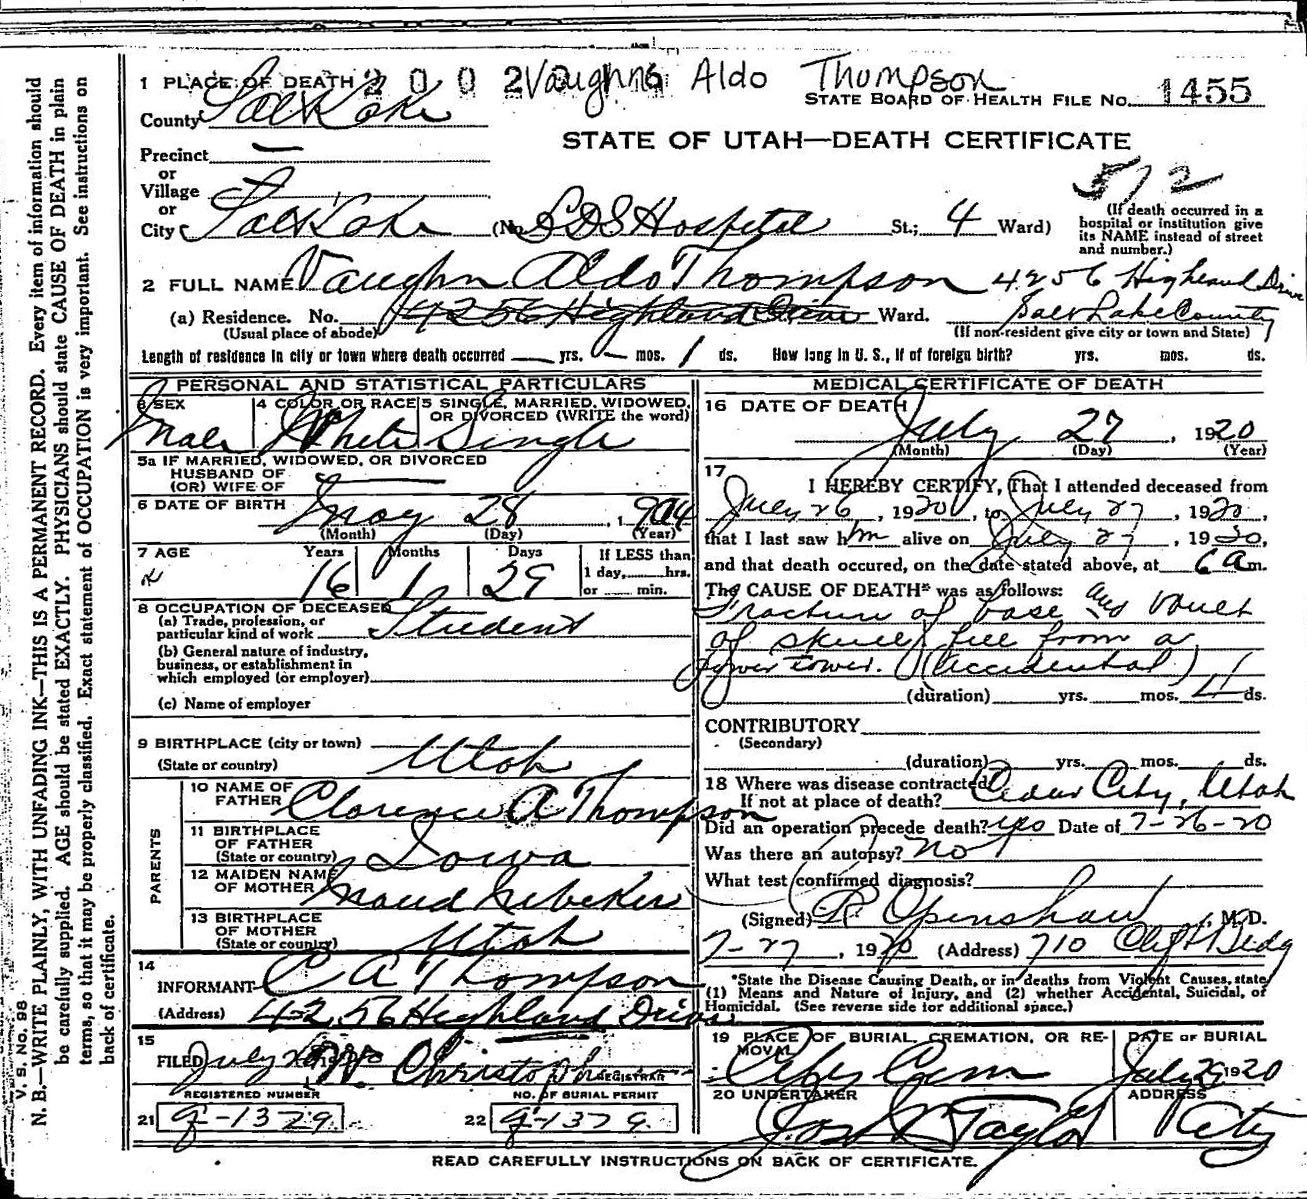 1 PLACE OF DEATH 2 0 0 2 Vaughn Aldo Thompson
STATE BOARD OF HEALTH FILE NO. 1455
County Salt Lake
STATE OF UTAH—DEATH CERTIFICATE
Precinct —
or
Village
or
City Salt Lake (No. LDS Hospital St.; 4 Ward)
512
(If death occurred in a
hospital or institution give
its NAME instead of street
and number.)
2 FULL NAME Vaughn Aldo Thompson 4256 Highland Drive
(a) Residence. No. 4256 Highland Drive Ward. Salt Lake County
(Usual place of abode) (If non-resident give city or town and State)
Length of residence in city or town where death occurred — yrs. — mos. 1 ds. How long in U. S., if of foreign birth? yrs. mos. ds.
PERSONAL AND STATISTICAL PARTICULARS
3 SEX 4 COLOR OR RACE 5 SINGLE, MARRIED, WIDOWED,
OR DIVORCED (WRITE the word)
Male White Single
5a IF MARRIED, WIDOWED, OR DIVORCED
HUSBAND OF
(OR) WIFE OF
6 DATE OF BIRTH May 28, 1904
(Month) (Day) (Year)
7 AGE Years Months Days If LESS than
16 1 29 1 day,......hrs.
or ...... min.
8 OCCUPATION OF DECEASED
(a) Trade, profession, or
particular kind of work Student
(b) General nature of industry,
business, or establishment in
which employed (or employer)
(c) Name of employer
9 BIRTHPLACE (city or town)
(State or country) Utah
PARENTS
10 NAME OF
FATHER Clarence A Thompson
11 BIRTHPLACE
OF FATHER
(State or country) Iowa
12 MAIDEN NAME
OF MOTHER Maud Nebeker
13 BIRTHPLACE
OF MOTHER
(State or country) Utah
14
INFORMANT C A Thompson
(Address) 4256 Highland Drive
15
FILED July W. Christoph REGISTRAR
REGISTERED NUMBER NO. OF BURIAL PERMIT
21 22
MEDICAL CERTIFICATE OF DEATH
16 DATE OF DEATH
July 27, 1920
(Month) (Day) (Year)
17
I HEREBY CERTIFY, That I attended deceased from
July 26, 1920, to July 27, 1920,
that I last saw him alive on July 27, 1920,
and that death occured, on the date stated above, at 6 a m.
The CAUSE OF DEATH* was as follows:
Fracture of base and vault
of skull fell from a
tower. (accidental)
(duration) yrs. mos. ds.
CONTRIBUTORY
(Secondary)
(duration) yrs. mos. ds.
18 Where was disease contracted
If not at place of death? Cedar City, Utah
Did an operation precede death? yes Date of 7-26-20
Was there an autopsy? no
What test confirmed diagnosis?
(Signed) R. Openshaw, M. D.
7-27, 1920 (Address) 710 Clift Bldg
*State the Disease Causing Death, or in deaths from Violent Causes, state
(1) Means and Nature of Injury, and (2) whether Accidental, Suicidal, or
Homicidal. (See reverse side for additional space.)
19 PLACE OF BURIAL, CREMATION, OR RE-
MOVAL DATE OF BURIAL
City Cem July 29 1920
20 UNDERTAKER ADDRESS
Jos Wm Taylor City
READ CAREFULLY INSTRUCTIONS ON BACK OF CERTIFICATE.
V. S. No. 98
N. B.—WRITE PLAINLY, WITH UNFADING INK—THIS IS A PERMANENT RECORD. Every item of information should
be carefully supplied. AGE should be stated EXACTLY. PHYSICIANS should state CAUSE OF DEATH in plain
terms, so that it may be properly classified. Exact statement of OCCUPATION is very important. See instructions on
back of certificate.